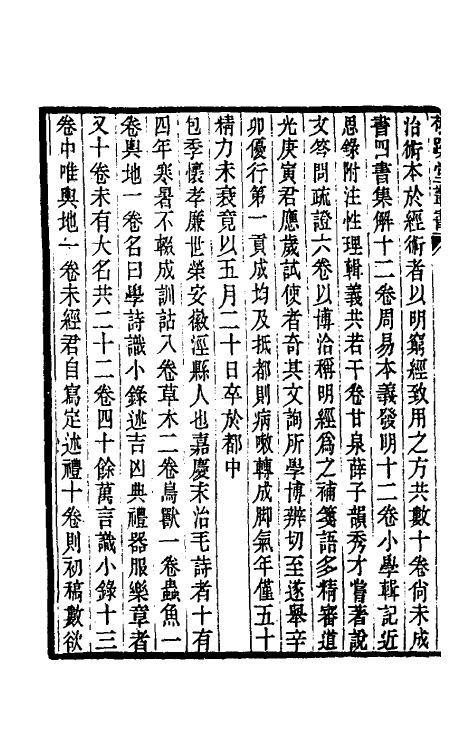 治術本於經術者以明窮經致用之方共數十卷尙未成
書四書集解十二卷周易本義發明十二卷小學輯記近
思錄附注性理輯義共若干卷甘泉薛子韻秀才嘗著說
文答問疏證六卷以博洽稱明經爲之補箋語多精審道
光庚寅君應歲試使者奇其文詢所學博辨切至遂舉辛
卯優行第一貢成均及抵都則病嗽轉成脚氣年僅五十
精力未衰竟以五月二十日卒於都中
包季懷孝廉世榮安徽涇縣人也嘉慶末治毛詩者十有
四年寒暑不輟成訓詁八卷草木二卷鳥獸一卷蟲魚一
卷輿地一卷名曰學詩識小錄述吉凶典禮器服樂章者
又十卷未有大名共二十二卷四十餘萬言識小錄十三
卷中唯輿地一卷未經君自寫定述禮十卷則初稿數欲